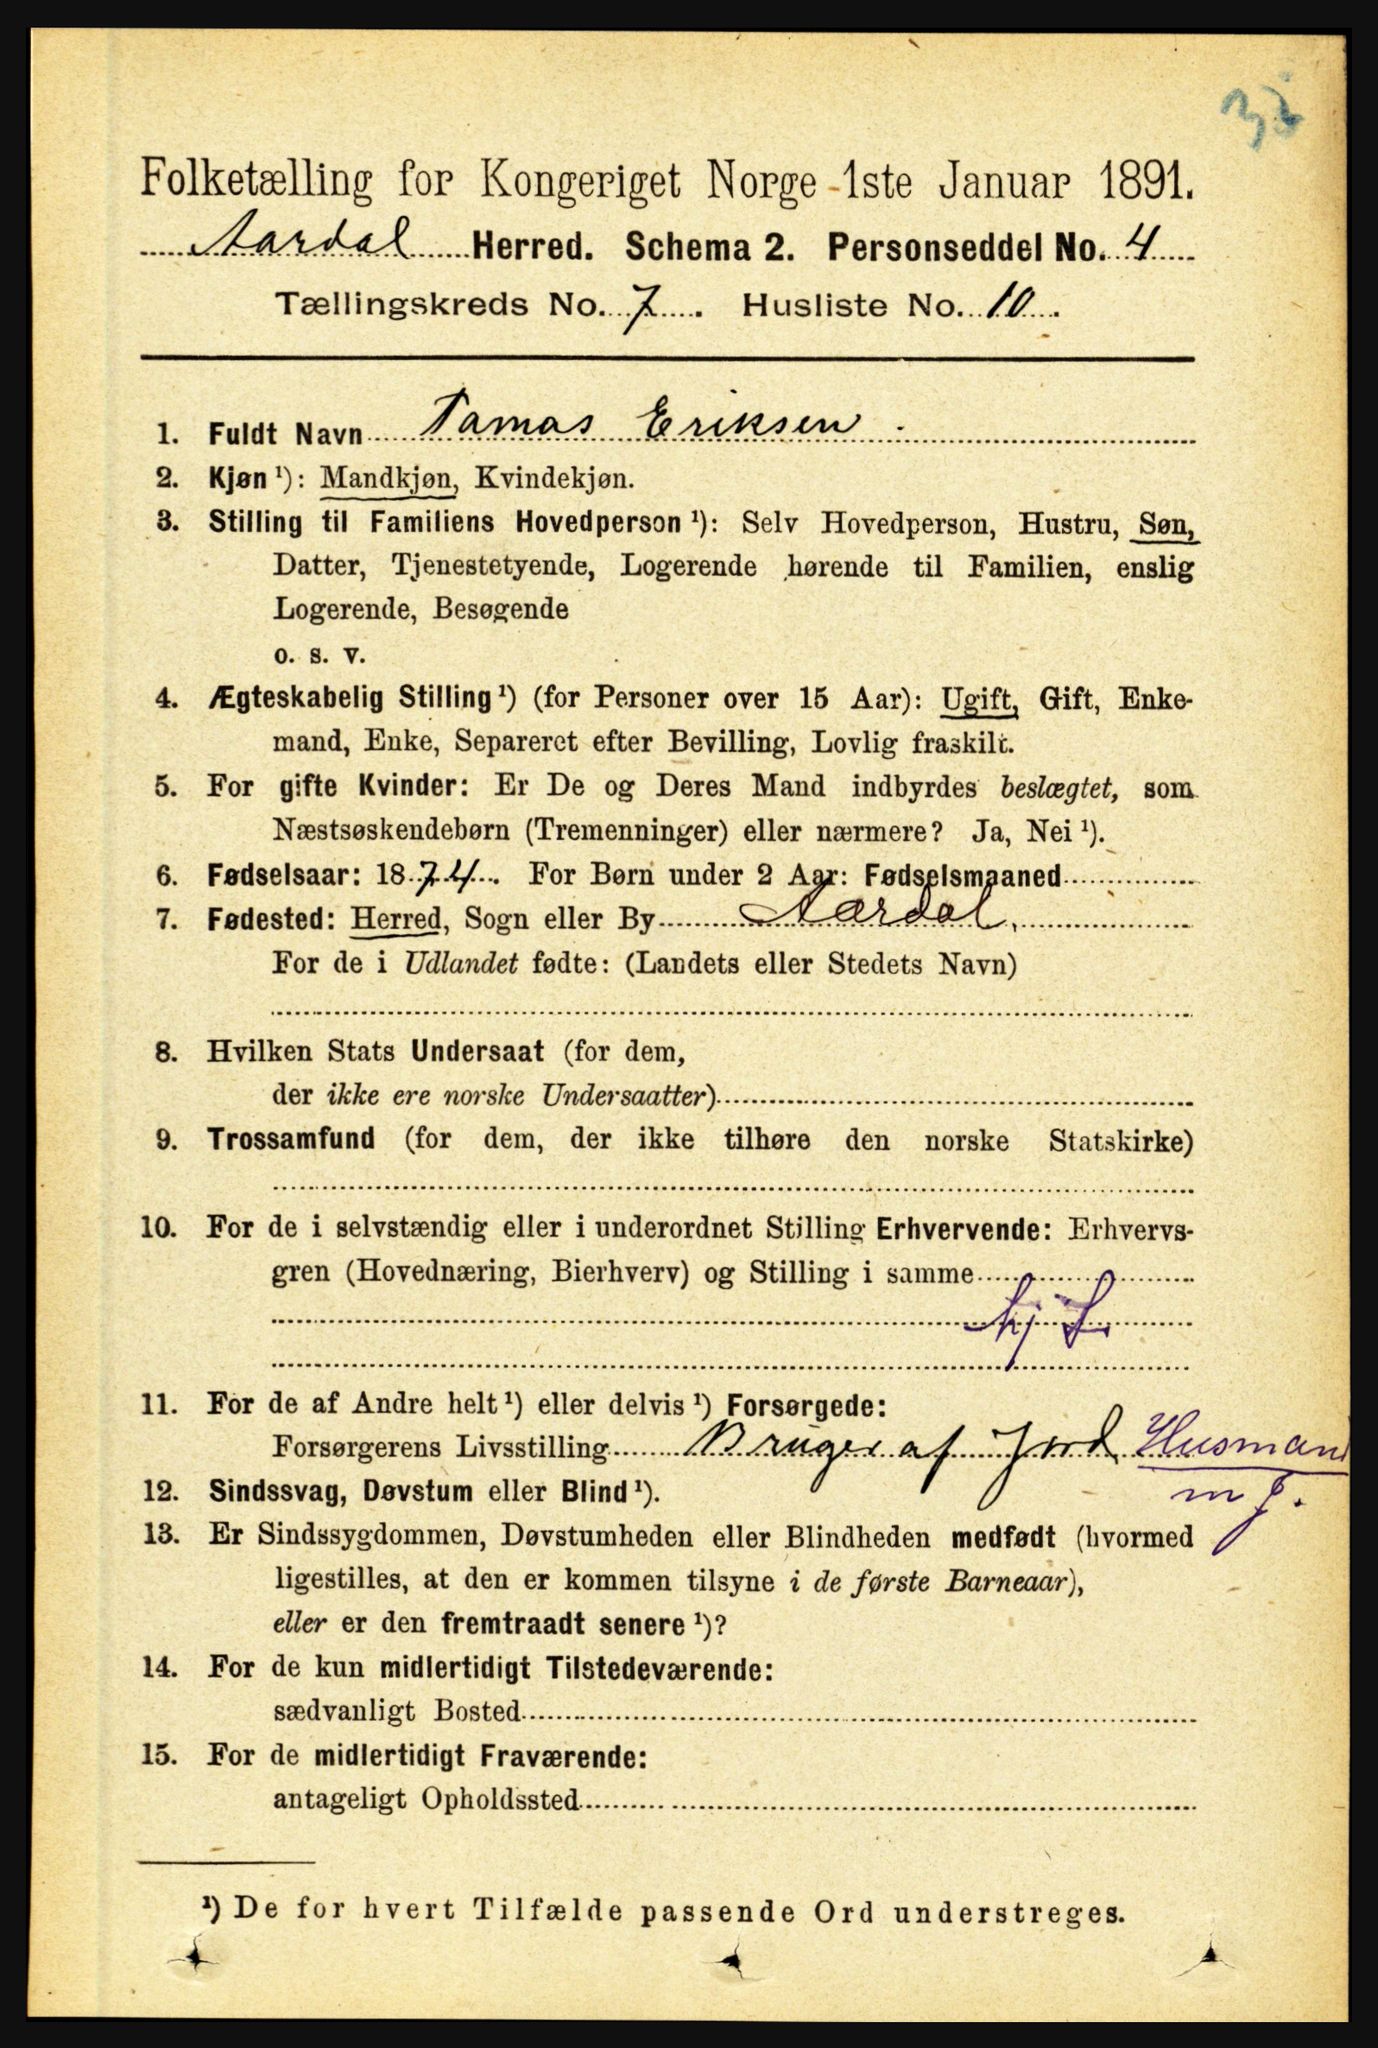 33
Folketælling for Kongeriget Norge 1ste Januar 1891.
Aardal Herred. Schema 2. Personseddel No. 4
Tællingskreds No. 7. Husliste No. 10.
1. Fuldt Navn Tamas Eriksen
2. Kjøn ¹): Mandkjøn, Kvindekjøn.
3. Stilling til Familiens Hovedperson ¹): Selv Hovedperson, Hustru, Søn,
Datter, Tjenestetyende, Logerende hørende til Familien, enslig
Logerende, Besøgende
o. s. v.
4. Ægteskabelig Stilling ¹) (for Personer over 15 Aar): Ugift, Gift, Enke-
mand, Enke, Separeret efter Bevilling, Lovlig fraskilt.
5. For gifte Kvinder: Er De og Deres Mand indbyrdes beslægtet, som
Næstsøskendebørn (Tremenninger) eller nærmere? Ja, Nei ¹).
6. Fødselsaar: 1874. For Børn under 2 Aar: Fødselsmaaned
7. Fødested: Herred, Sogn eller By Aardal,
For de i Udlandet fødte: (Landets eller Stedets Navn)
8. Hvilken Stats Undersaat (for dem,
der ikke ere norske Undersaatter)
9. Trossamfund (for dem, der ikke tilhøre den norske Statskirke)
10. For de i selvstændig eller i underordnet Stilling Erhvervende: Erhvervs-
gren (Hovednæring, Bierhverv) og Stilling i samme
11. For de af Andre helt ¹) eller delvis ¹) Forsørgede:
Forsørgerens Livsstilling Bruger af Jord Husmand
m J.
12. Sindssvag, Døvstum eller Blind ¹).
13. Er Sindssygdommen, Døvstumheden eller Blindheden medfødt (hvormed
ligestilles, at den er kommen tilsyne i de første Barneaar),
eller er den fremtraadt senere ¹)?
14. For de kun midlertidigt Tilstedeværende:
sædvanligt Bosted
15. For de midlertidigt Fraværende:
antageligt Opholdssted
¹) De for hvert Tilfælde passende Ord understreges.